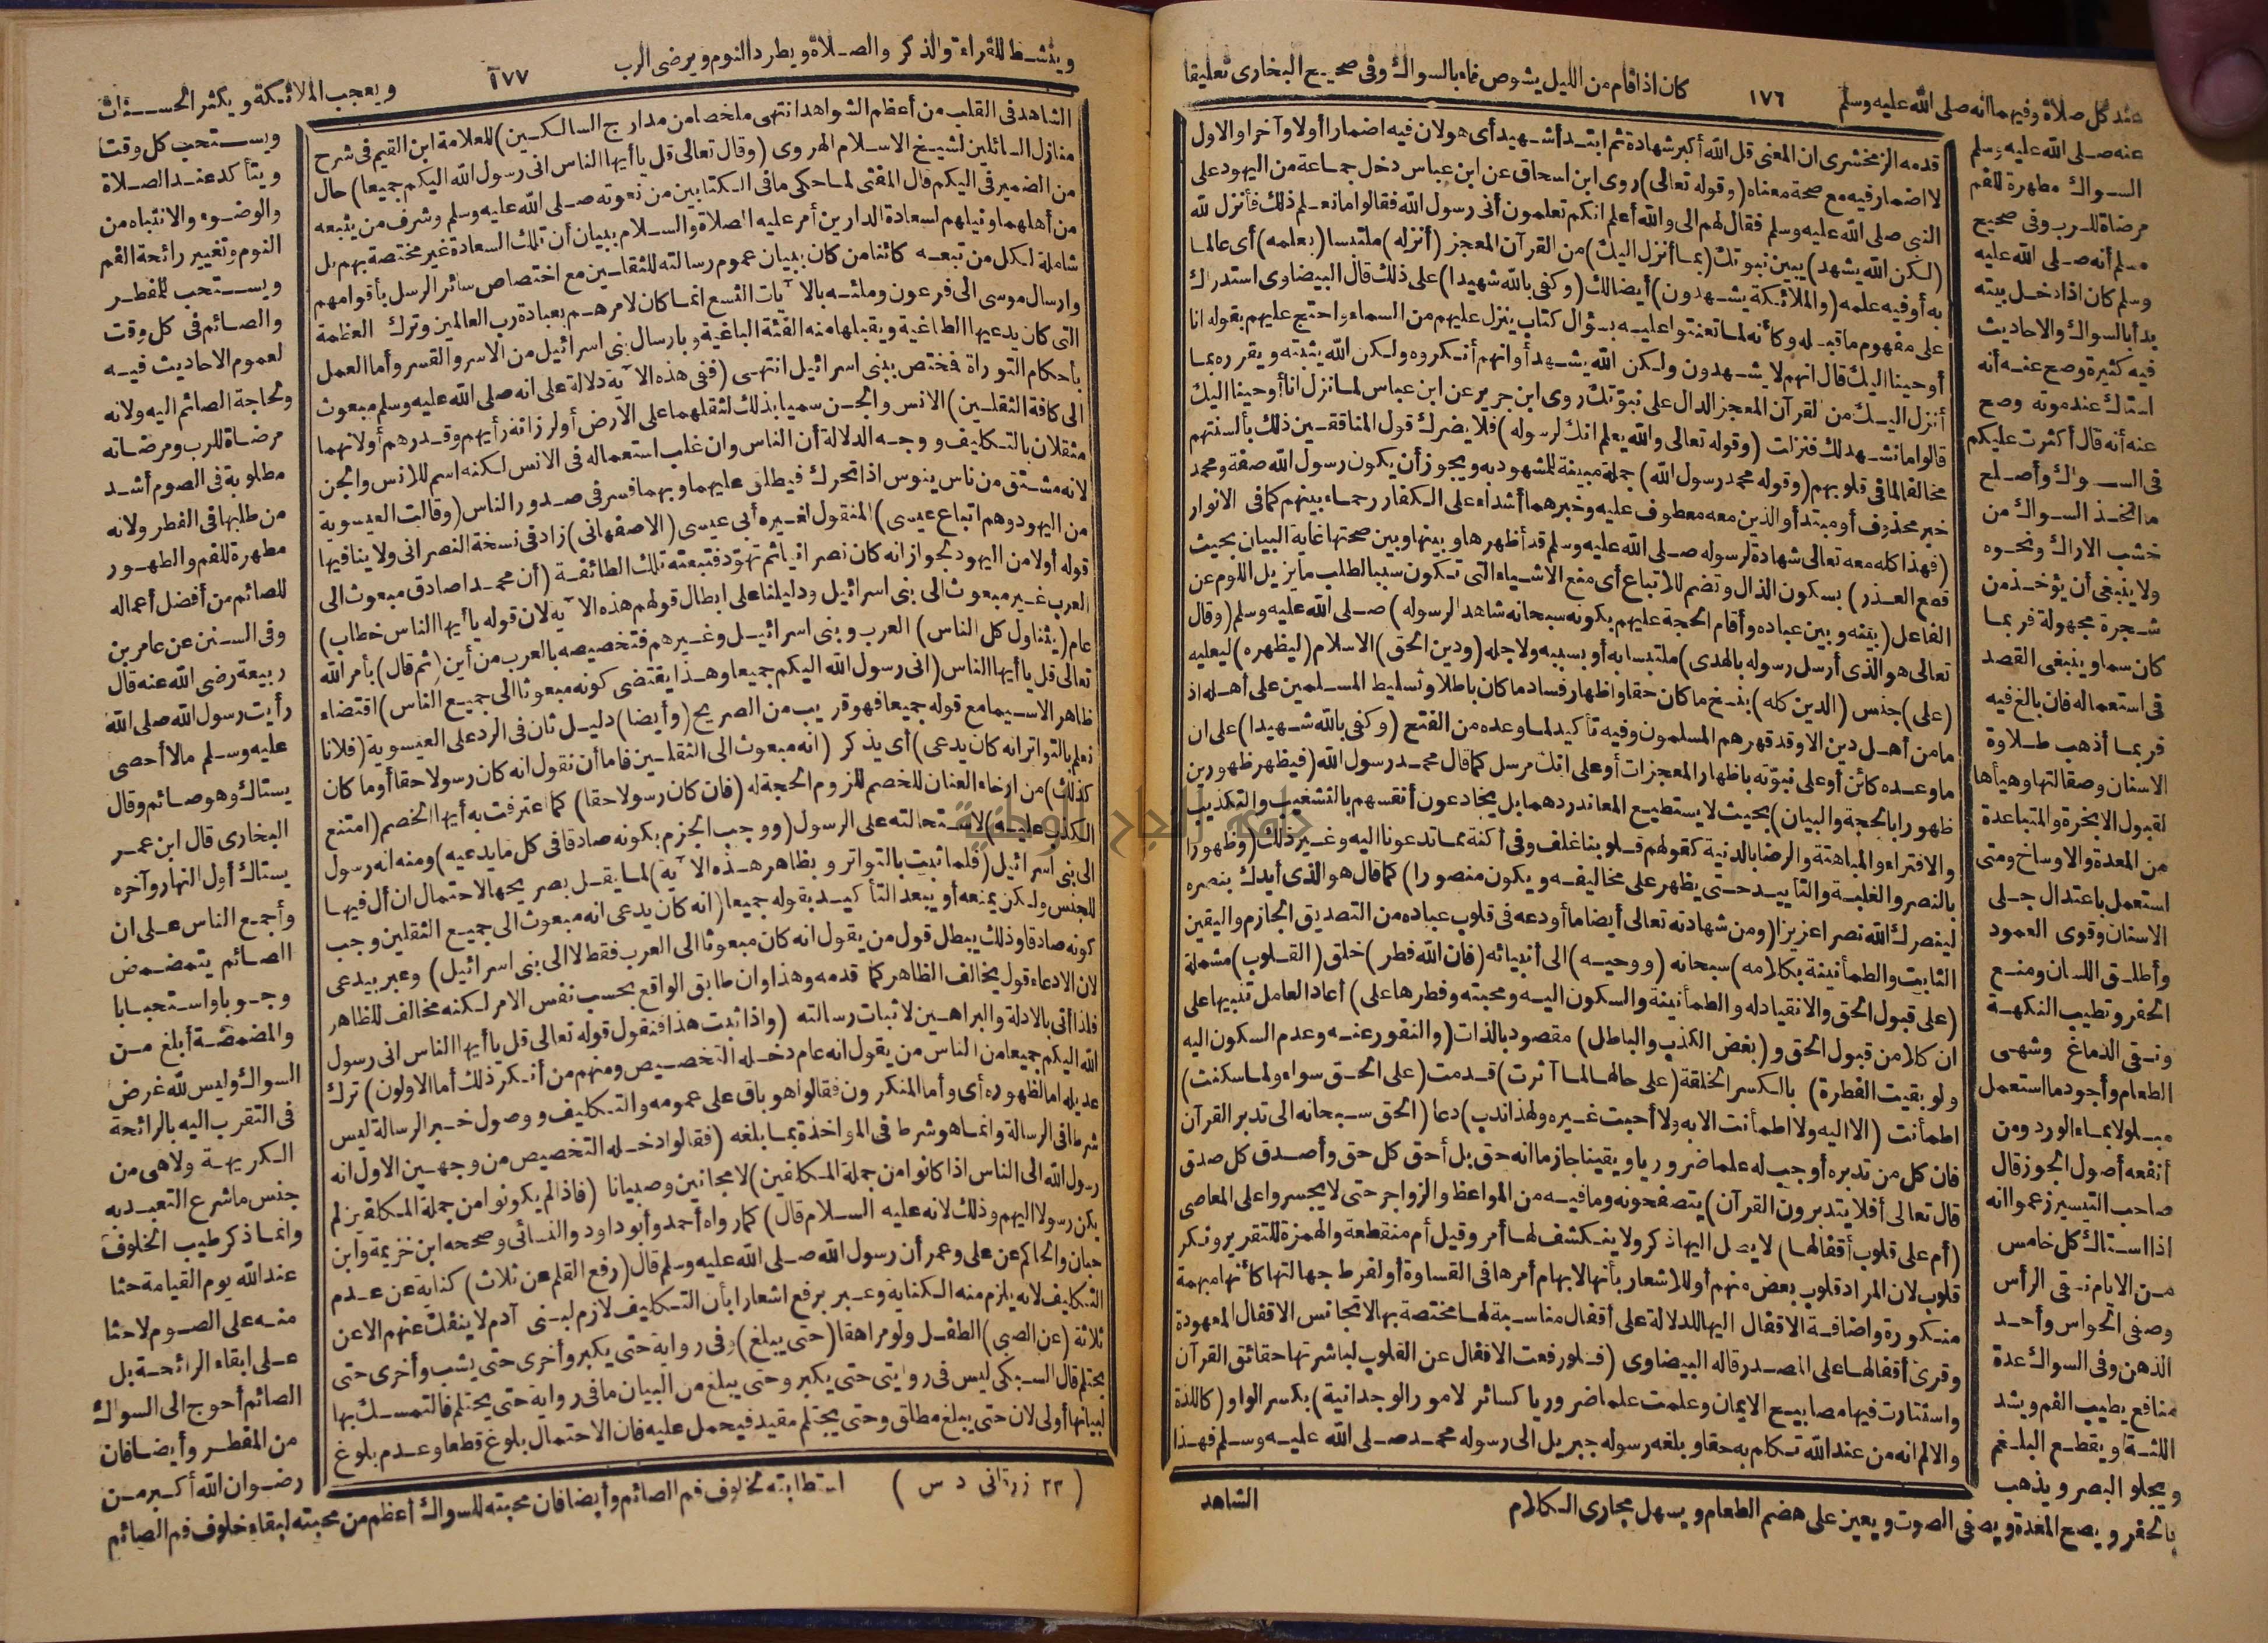 عند كل صلاة وفيهما انه صلى الله عليه وسلم
١٧٦
كان اذا قام من الليل يشوص فاه بالسواك وفى صحيح البخارى تعليقا
عنه صلى الله عليه وسلم
السواك مطهرة للفم
مرضاة للرب وفى صحيح
مسلم أنه صلى الله عليه
وسلم كان اذا دخل بيته
بدأ بالسواك والاحاديث
فيه كثيرة وصح عنه أنه
استاك عند موته وصح
عنه أنه قال أكثرت عليكم
فى السواك وأصلح
ما اتخذ السواك من
خشب الاراك ونحوه
ولا ينبغى أن يؤخذ من
شجرة مجهولة فربما
كان سما وينبغى القصد
فى استعماله فان بالغ فيه
فربما أذهب طلاوة
الاسنان وصقالتها وهيأها
لقبول الابخرة والمتباعدة
من المعدة والاوساخ ومتى
استعمل باعتدال جلى
الاسنان وقوى العمود
وأطلق اللسان ومنع
الحفر وتطيب النكهة
ونقى الدماغ وشهى
الطعام وأجود ما استعمل
مبلولا بماء الورد ومن
أنفعه أصول الجوز قال
صاحب التيسير زعموا انه
اذا استاك كل خامس
من الايام نقى الرأس
وصفى الحواس وأحد
الذهن وفى السواك عدة
منافع يطيب الفم ويشد
اللثة ويقطع البلغم
ويجلو البصر ويذهب
بالحفر ويصح المعدة ويصفى الصوت ويعين على هضم الطعام ويسهل مجارى الكلام
قدمه الزمخشرى ان المعنى قل الله أكبر شهادة ثم ابتدأ شهيد أى هو لان فيه اضمارا أولا وآخرا والاول
لا اضمار فيه مع صحة معناه (وقوله تعالى) روى ابن اسحاق عن ابن عباس دخل جماعة من اليهود على
النبى صلى الله عليه وسلم فقال لهم الى والله أعلم انكم تعلمون أنى رسول الله فقالوا ما نعلم ذلك فأنزل لله
(لكن الله يشهد) يبين نبوتك (بما أنزل اليك) من القرآن المعجز (أنزله) ملتبسا (بعلمه) أى عالما
به أو فيه علمه (والملائكة يشهدون) أيضا لك (وكفى بالله شهيدا) على ذلك قال البيضاوى استدراك
على مفهوم ما قبله وكأنه لما تعنتوا عليه بسؤال كتاب ينزل عليهم من السماء واحتج عليهم بقوله انا
أوحينا اليك قال انهم لا يشهدون ولكن الله يشهد أو انهم أنكروه ولكن الله يثبته ويقرره بما
أنزل اليك من القرآن المعجز الدال على نبوتك روى ابن جرير عن ابن عباس لما نزل انا أوحينا اليك
قالوا ما نشهد لك فنزلت (وقوله تعالى والله يعلم انك لرسوله) فلا يضرك قول المنافقين ذلك بألسنتهم
مخالفا لما فى قلوبهم (وقوله محمد رسول الله) جملة مبينة للمشهود به ويجوز أن يكون رسول الله صفة ومحمد
خبر محذوف أو مبتدأ والذين معه معطوف عليه وخبرهما أشداء على الكفار رحماء بينهم كما فى الانوار
(فهذا كله معه تعالى شهادة لرسوله صلى الله عليه وسلم قد أظهرها وبينها وبين صحتها غاية البيان بحيث
قطع العذر) بسكون الذال وتضم للاتباع أى منع الاشياء التى تكون سببا لطلب ما يزيل اللوم عن
الفاعل (بينه وبين عباده وأقام الحجة عليهم بكونه سبحانه شاهدا لرسوله) صلى الله عليه وسلم (وقال
تعالى هو الذى أرسل رسوله بالهدى) ملتبسا به أو بسببه ولاجله (ودين الحق) الاسلام (ليظهره) ليعليه
(على) جنس (الدين كله) بنسخ ما كان حقا واظهار فساد ما كان باطلا وتسليط المسلمين على أهله اذ
ما من أهل دين الا وقد قهرهم المسلمون وفيه تأكيد لما وعده من الفتح (وكفى بالله شهيدا) على ان
ما وعده كائن أو على نبوته باظهار المعجزات أو على انك مرسل كما قال محمد رسول الله (فيظهر ظهورين
ظهورا بالحجة والبيان) بحيث لا يستطيع المعاند ردهما بل يخادعون أنفسهم بالتشغيب والتكذيب
والافتراء والمباهتة والرضا بالدنية كقولهم قلوبنا غلف وفى أكنة مما تدعونا اليه وغير ذلك (وظهورا
بالنصر والغلبة والتأييد حتى يظهر على مخاليفه ويكون منصورا) كما قال هو الذى أيدك بنصره
لينصرك الله نصرا عزيزا (ومن شهادته تعالى أيضا ما أودعه فى قلوب عباده من التصديق الجازم واليقين
الثابت والطمأنينة بكلامه) سبحانه (ووحيه) الى أنبيائه (فان الله فطر) خلق (القلوب) مشتملة
(على قبول الحق والانقياد له والطمأنينة والسكون اليه ومحبته وفطرها على) أعاد العامل تنبيها على
ان كلا من قبول الحق و (بغض الكذب والباطل) مقصود بالذات (والنفور عنه وعدم السكون اليه
ولو بقيت الفطرة) بالكسر الخلقة (على حالها لما آثرت) قدمت (على الحق سواه ولما سكنت)
اطمأنت (الا اليه ولا اطمأنت الا به ولا أحبت غيره ولهذا ندب) دعا (الحق سبحانه الى تدبر القرآن
فان كل من تدبره أوجب له علما ضروريا ويقينا جازما انه حق بل أحق كل حق وأصدق كل صدق
قال تعالى أفلا يتدبرون القرآن) يتصفحونه وما فيه من المواعظ والزواجر حتى لا يجسروا على المعاصى
(أم على قلوب أقفالها) لا يصل اليها ذكر ولا ينكشف لها أمر وقيل أم منقطعة والهمزة للتقرير ونكر
قلوب لان المراد قلوب بعض منهم أو للاشعار بأنها لابهام أمرها فى القساوة أو لفرط جهالتها كأنها مبهمة
منكورة واضافة الاقفال اليها للدلالة على أقفال مناسبة لها مختصة بها لا تجانس الاقفال المعهودة
وقرئ أقفالها على المصدر قاله البيضاوى (فلو رفعت الاقفال عن القلوب لباشرتها حقائق القرآن
واستنارت فيها مصابيح الايمان وعلمت علما ضروريا كسائر لامور الوجدانية) بكسر الواو (كاللذة
والالم انه من عند الله تكلم به حقا وبلغه رسوله جبريل الى رسوله محمد صلى الله عليه وسلم فهذا
الشاهد
وينشط للقراءة والذكر والصلاة ويطرد النوم ويرضى الرب
١٧٧
ويعجب الملائكة ويكثر الحسنات
الشاهد فى القلب من أعظم الشواهد انتهى ملخصا من مدارج السالكين) للعلامة ابن القيم فى شرح
منازل السائلين لشيخ الاسلام الهروى (وقال تعالى قل يا أيها الناس انى رسول الله اليكم جميعا) حال
من الضمير فى اليكم قال المفتى لما حكى ما فى الكتابين من نعوته صلى الله عليه وسلم وشرف من يتبعه
من أهلهما ونيلهم لسعادة الدارين أمر عليه الصلاة والسلام ببيان أن تلك السعادة غير مختصة بهم بل
شاملة لكل من تبعه كائنا من كان ببيان عموم رسالته للثقلين مع اختصاص سائر الرسل بأقوامهم
وارسال موسى الى فرعون وملئه بالآيات التسع انما كان لامرهم بعبادة رب العالمين وترك العظمة
التى كان يدعيها الطاغية ويقبلها منه الفئة الباغية وبارسال بنى اسرائيل من الاسر والقسر وأما العمل
بأحكام التوراة فمختص ببنى اسرائيل انتهى (ففى هذه الآية دلالة على انه صلى الله عليه وسلم مبعوث
الى كافة الثقلين) الانس والجن سميا بذلك لثقلهما على الارض أو لرزانة رأيهم وقدرهم أو لانهما
مثقلان بالتكليف ووجه الدلالة أن الناس وان غلب استعماله فى الانس لكنه اسم للانس والجن
لانه مشتق من ناس ينوس اذا تحرك فيطلق عليهما وبهما فسر فى صدور الناس (وقالت العيسوية
من اليهود وهم اتباع عيسى) المنقول لغيره أبى عيسى (الاصفهانى) زاد فى نسخة النصرانى ولا ينافيها
قوله أولا من اليهود لجواز انه كان نصرانيا ثم تهود فتبعته تلك الطائفة (أن محمدا صادق مبعوث الى
العرب غير مبعوث الى بنى اسرائيل ودليلنا على ابطال قولهم هذه الآية لان قوله يا أيها الناس خطاب)
عام (يتناول كل الناس) العرب وبنى اسرائيل وغيرهم فتخصيصه بالعرب من أين (ثم قال) بأمر الله
تعالى قل يا أيها الناس (انى رسول الله اليكم جميعا وهذا يقتضى كونه مبعوثا الى جميع الناس) اقتضاء
ظاهرا لا سيما مع قوله جميعا فهو قريب من الصريح (وأيضا) دليل ثان فى الرد على العيسوية (فلانا
نعلم بالتواتر انه كان يدعى) أى يذكر (انه مبعوث الى الثقلين فاما أن نقول انه كان رسولا حقا أو ما كان
كذلك) من ارخاء العنان للخصم للزوم الحجة له (فان كان رسولا حقا) كما اعترفت به أيها الخصم (امتنع
الكذب عليه) لاستحالته على الرسول (ووجب الجزم بكونه صادقا فى كل ما يدعيه) ومنه انه رسول
الى بنى اسرائيل (فلما ثبت بالتواتر وبظاهر هذه الآية) لما يقل بصريحها لاحتمال ان أل فيها
للجنس ولكن يمنعه أو يبعد التأكيد بقوله جميعا (انه كان يدعى انه مبعوث الى جميع الثقلين وجب
كونه صادقا وذلك يبطل قول من يقول انه كان مبعوثا الى العرب فقط لا الى بنى اسرائيل) وعبر بيدعى
لان الادعاء قول يخالف الظاهر كما قدمه وهذا وان طابق الواقع بحسب نفس الامر لكنه مخالف للظاهر
فلذا أتى بالادلة والبراهين لاثبات رسالته (واذا ثبت هذا فنقول قوله تعالى قل يا أيها الناس انى رسول
الله اليكم جميعا من الناس من يقول انه عام دخله التخصيص ومنهم من أنكر ذلك أما الاولون) ترك
عديله اما لظهوره أى وأما المنكرون فقالوا هو باق على عمومه والتكليف ووصول خبر الرسالة ليس
شرطا فى الرسالة وانما هو شرط فى المواخذة بما بلغه (فقالوا دخله التخصيص من وجهين الاول انه
رسول الله الى الناس اذا كانوا من جملة المكلفين) لا مجانين وصبيانا (فاذا لم يكونوا من جملة المكلفين لم
يكن رسولا اليهم وذلك لانه عليه السلام قال) كما رواه أحمد وأبو داود والنسائى وصححه ابن خزيمة وابن
حبان والحاكم عن على وعمر أن رسول الله صلى الله عليه وسلم قال (رفع القلم عن ثلاث) كناية عن عدم
التكليف لانه يلزم منه الكتابة وعبر برفع اشعارا بأن التكليف لازم لبنى آدم لا ينفك عنهم الا عن
ثلاثة (عن الصبى) الطفل ولو مراهقا (حتى يبلغ) وفى رواية حتى يكبر وأخرى حتى يشب وأخرى حتى
يحتلم قال السبكى ليس فى روايتى حتى يكبر وحتى يبلغ من البيان ما فى رواية حتى يحتلم فالتمسك بها
لبيانها أولى لان حتى يبلغ مطلق وحتى يحتلم مقيد فيحمل عليه فان الاحتمال بلوغ قطعا وعدم بلوغ
ويستحب كل وقت
ويتأكد عند الصلاة
والوضوء والانتباه من
النوم وتغيير رائحة الفم
ويستحب للمفطر
والصائم فى كل وقت
لعموم الاحاديث فيه
ولحاجة الصائم اليه ولانه
مرضاة للرب ومرضاته
مطلوبة فى الصوم أشد
من طلبها فى الفطر ولانه
مطهرة للفم والطهور
للصائم من أفضل أعماله
وفى السنن عن عامر بن
ربيعة رضى الله عنه قال
رأيت رسول الله صلى الله
عليه وسلم مالا أحصى
يستاك وهو صائم وقال
البخارى قال ابن عمر
يستاك أول النهار وآخره
وأجمع الناس على ان
الصائم يتمضمض
وجوبا واستحبابا
والمضمضة أبلغ من
السواك وليس لله غرض
فى التقرب اليه بالرائحة
الكريهة ولا هى من
جنس ما شرع التعبد به
وانما ذكر طيب الخلوف
عند الله يوم القيامة حثا
منه على الصوم لا حثا
على ابقاء الرائحة بل
الصائم أحوج الى السواك
من المفطر وأيضا فان
رضوان الله أكبر من
استطابته لخلوف فم الصائم وأيضا فان محبته للسواك أعظم من محبته لبقاء خلوف فم الصائم
(٢٣ زرقانى د س)